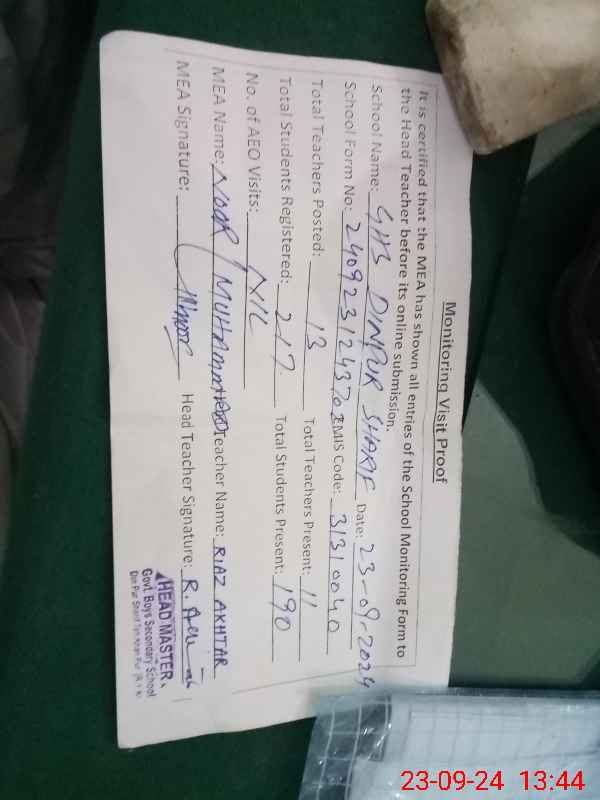 Monitoring Visit Proof
It is certified that the MEA has shown all entries of the School Monitoring Form to
the Head Teacher before its online submission.
School Name: GHS DINPUR SHARIF Date: 23-09-2024
School Form No: 240923124370 EMIS Code: 31310040
Total Teachers Posted: 13 Total Teachers Present: 11
Total Students Registered: 217 Total Students Present: 190
No. of AEO Visits: NIL
MEA Name: NOOR MUHAMMAD Teacher Name: RIAZ AKHTAR
MEA Signature: Head Teacher Signature:
HEAD MASTER
Govt. Boys Secondary School
Din Pur Sharif Tps Khan Pur (R.Y.K)
23-09-24 13:44